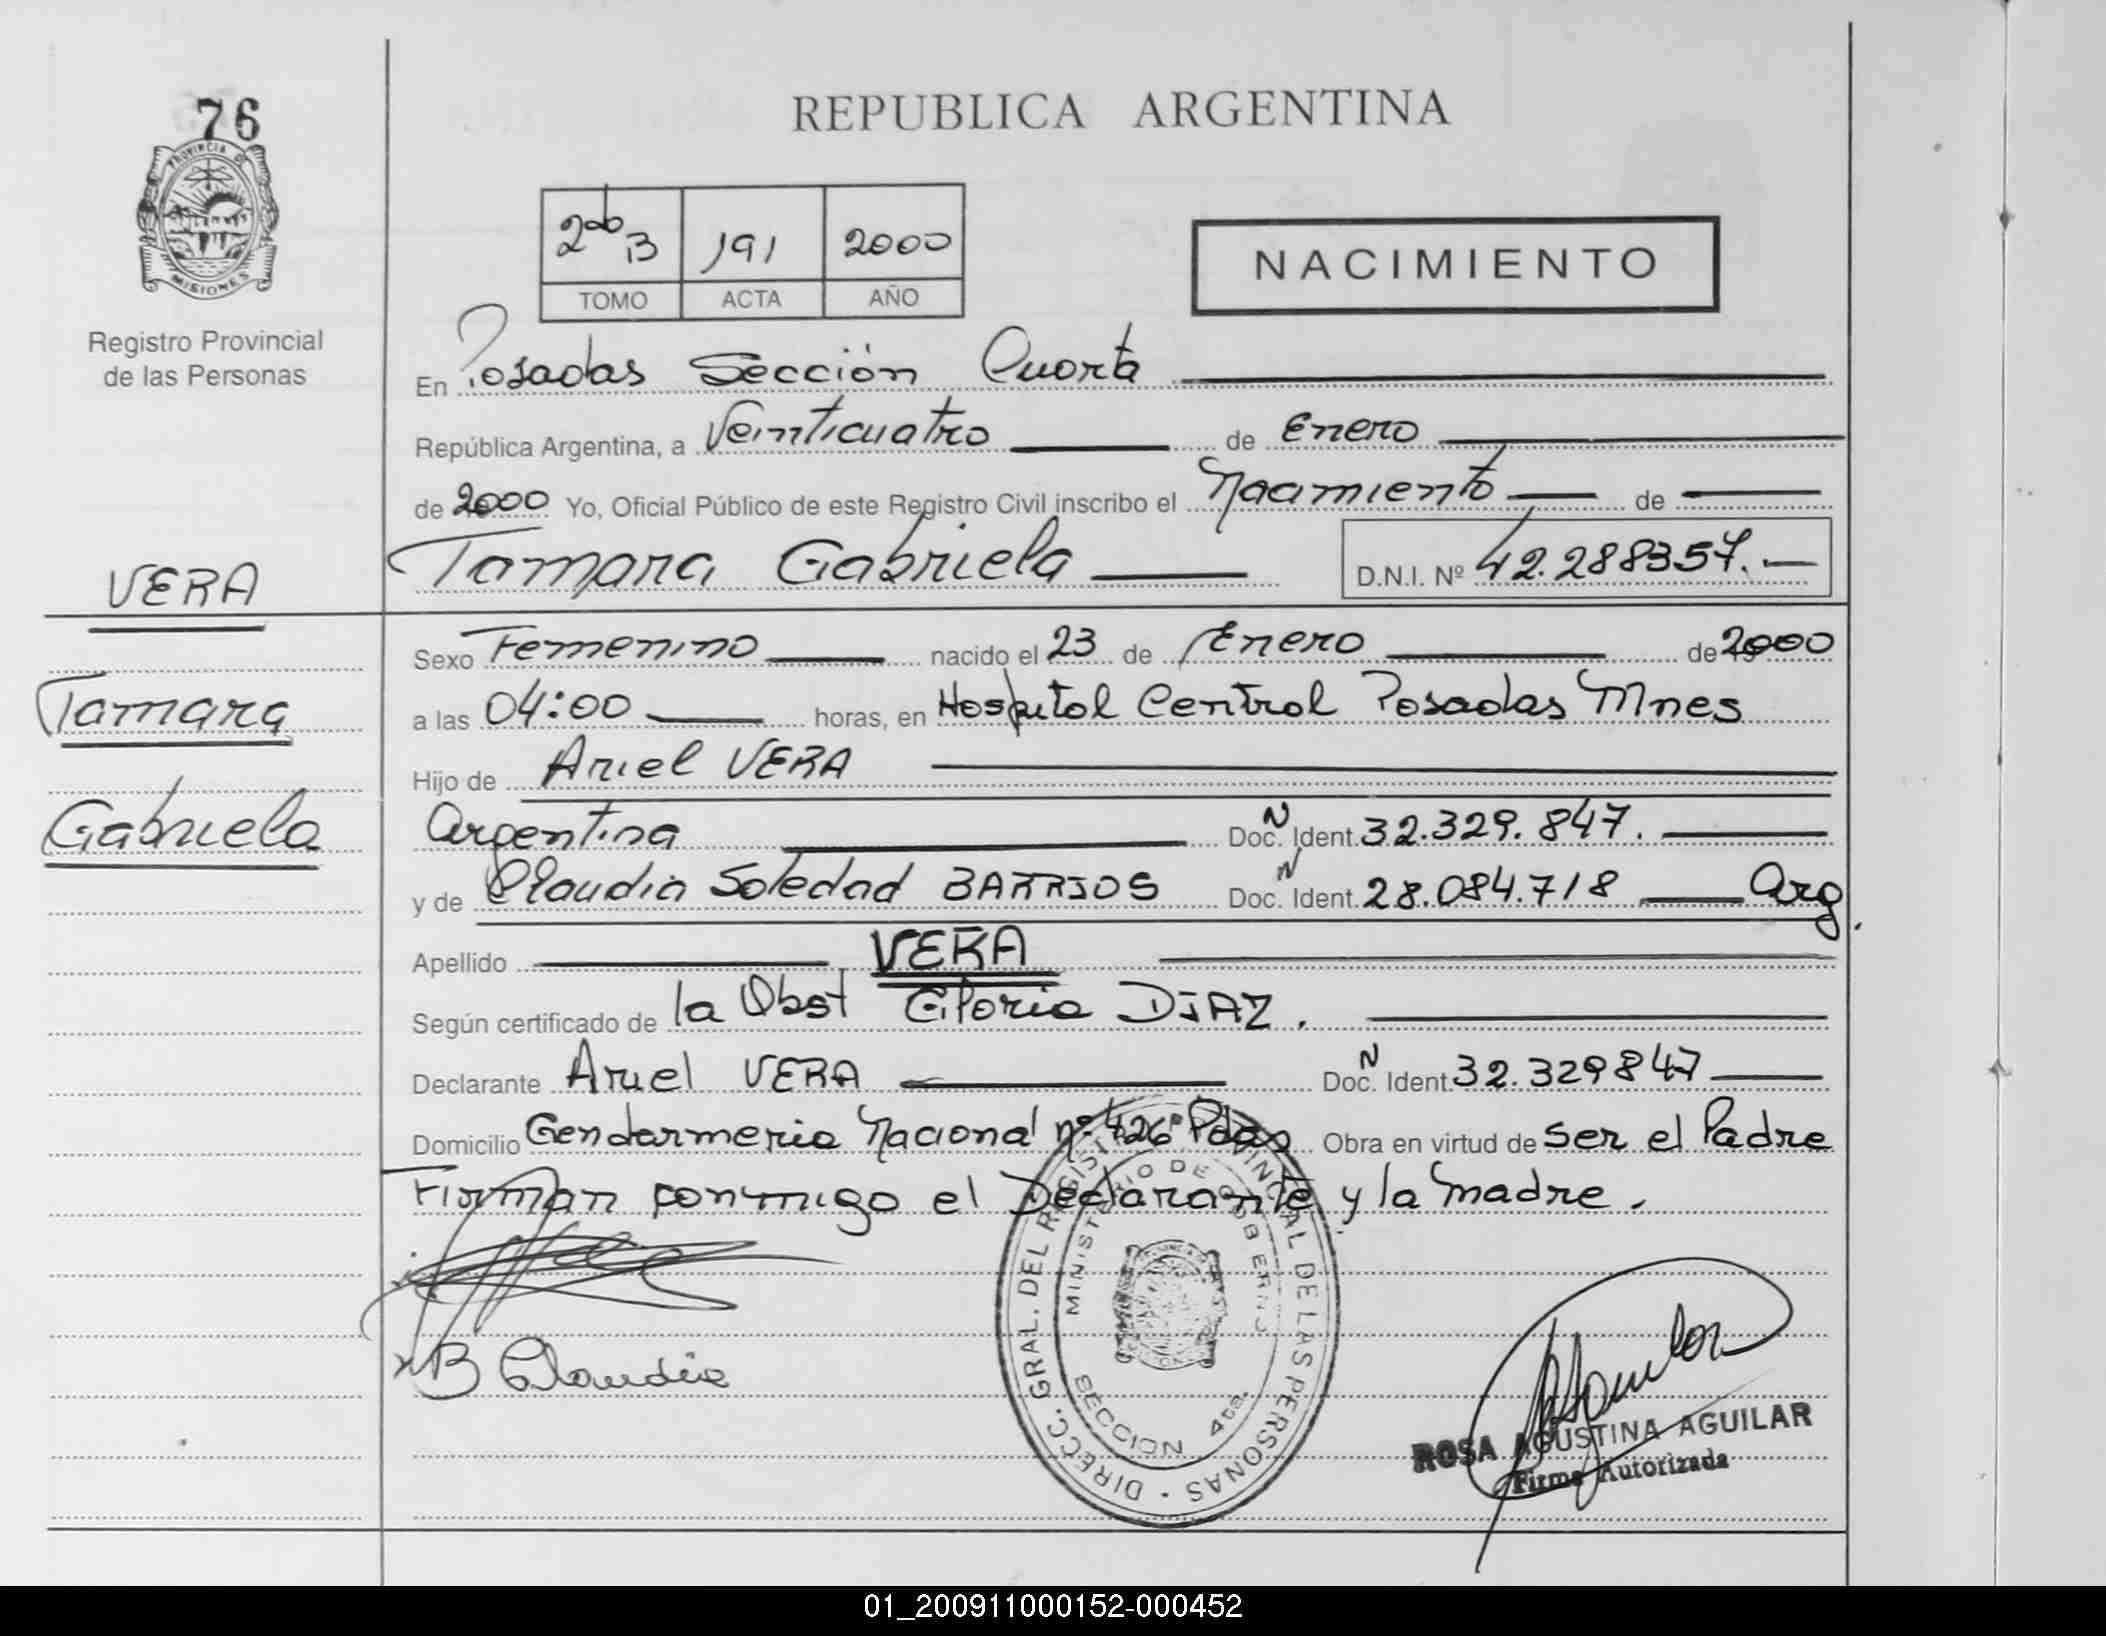 76
PROVINCIA DE
MISIONES
Registro Provincial
de las Personas
REPUBLICA ARGENTINA
2do B 191 2000
TOMO ACTA AÑO
NACIMIENTO
En Posadas Sección Cuarta
República Argentina, a Veinticuatro de Enero
de 2000 Yo, Oficial Público de este Registro Civil inscribo el Nacimiento de
Tamara Gabriela D.N.I. Nº 42.288357.
VERA
Tamara
Gabriela
Sexo Femenino nacido el 23 de Enero de 2000
a las 04:00 horas, en Hospital Central Posadas Mnes
Hijo de Ariel VERA
Argentina Doc. N Ident. 32.329.847.
y de Claudia Soledad BARRIOS Doc. N Ident. 28.084.718 Arg.
Apellido VERA
Según certificado de la Obst Gloria DIAZ.
Declarante Ariel VERA Doc. N Ident. 32.329847
Domicilio Gendarmeria Nacional nº 426 Pdas Obra en virtud de ser el Padre
Firman conmigo el Declarante y la madre.
B Claudia
DIRECC. GRAL. DEL REGISTRO PROVINCIAL DE LAS PERSONAS
MINISTERIO DE GOBIERNO
SECCION 4ta.
ROSA AGUSTINA AGUILAR
Firma Autorizada
01_200911000152-000452